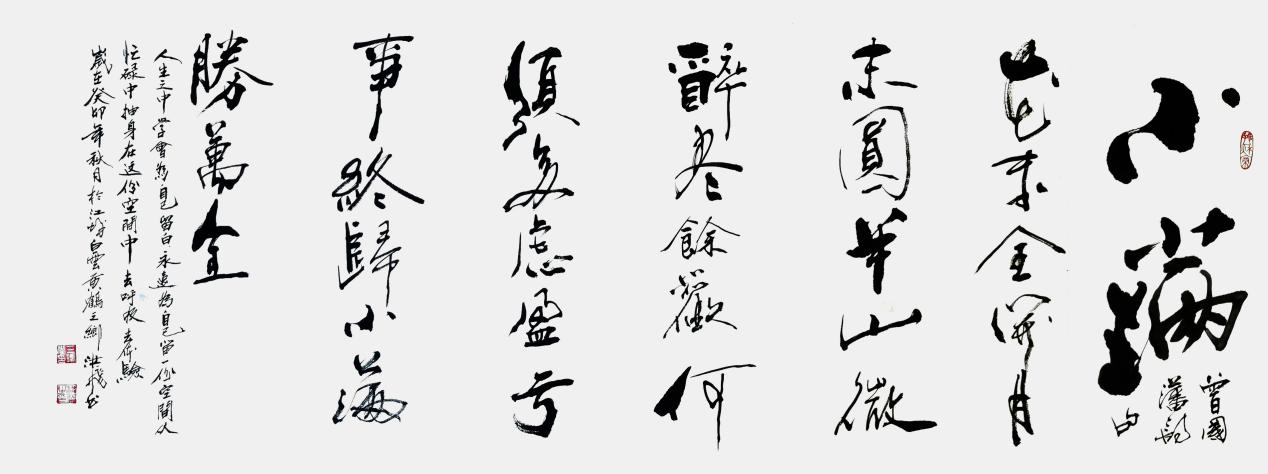 小滿
曾國
藩詩
句
花未全開月
未圓半山微
醉尽餘歡何
須多慮盈亏
事終歸小滿
勝萬全
人生之中學會為自己留白永遠為自己留一份空間从
忙碌中抽身在这份空間中去呼吸去体驗
歲在癸卯年秋月於江城白雲黃鶴之鄉洪